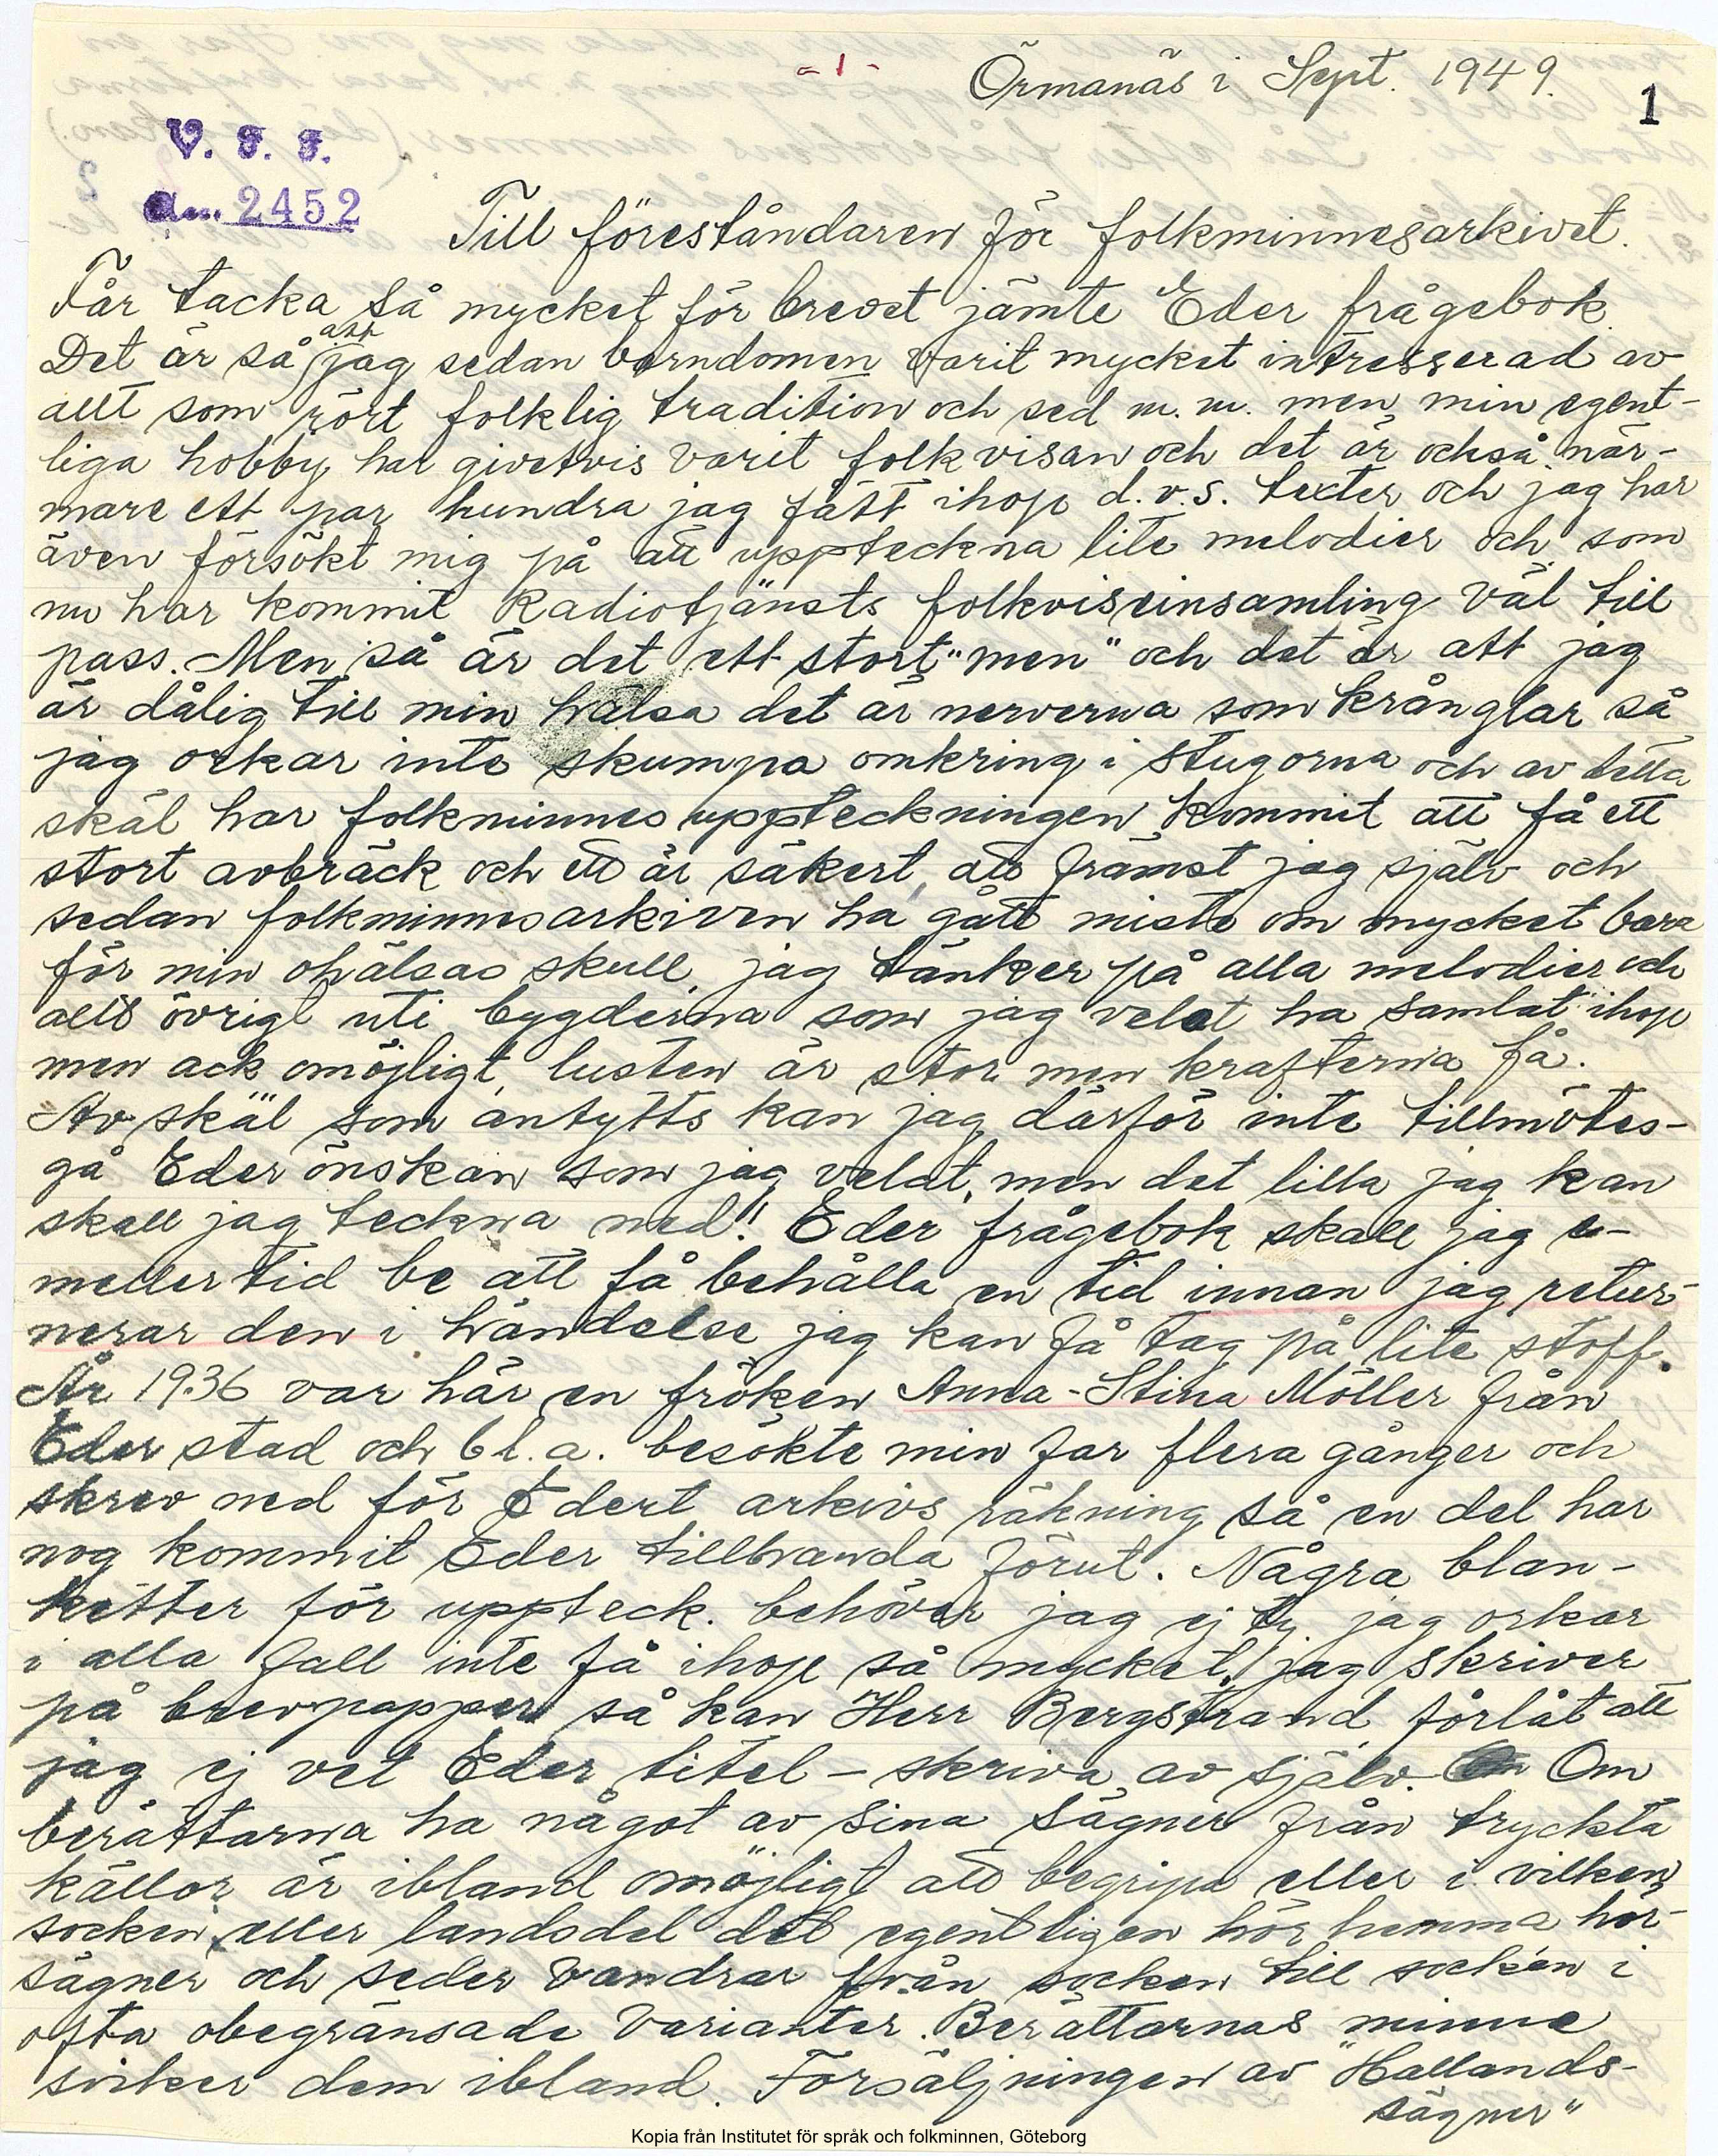 - 1 -
Örmanäs i Sept. 1949.
1
V. F. F.
2452
Till föreståndaren för folkminnesarkivet.
Får tacka så mycket för brevet jämte Eder frågebok.
Det är så att jag sedan barndomen varit mycket intresserad av
allt som rört folklig tradition och sed m.m. men min egent-
liga hobby har givetvis varit folkvisan och det är också när-
mare ett par hundra jag fått ihop d.v.s. texter och jag har
även försökt mig på att uppteckna lite melodier och som
nu har kommit Radiotjänsts folkviseinsamling väl till
pass. Men så är det ett stort "men" och det är att jag
är dålig till min hälsa det är nerverna som krånglar så
jag orkar inte skumpa omkring i stugorna och av detta
skäl har folkminnesuppteckningen kommit att få ett
stort avbräck och ett är säkert att främst jag själv och
sedan folkminnesarkiven ha gått miste om mycket bara
för min ohälsas skull, jag tänker på alla melodier och
allt övrigt uti bygderna som jag velat ha samlat ihop
men ack omöjligt, lusten är stor men krafterna få.
Av skäl som antytts kan jag därför inte tillmötes-
gå Eder önskan som jag velat, men det lilla jag kan
skall jag teckna ned! Eder frågebok skall jag e-
mellertid be att få behålla en tid innan jag retur-
nerar den i händelse jag kan få tag på lite stoff.
År 1936 var här en fröken Anna-Stina Möller från
Eder stad och bl.a. besökte min far flera gånger och
skrev ned för Edert arkivs räkning så en del har
nog kommit Eder tillhanda förut. Några blan-
ketter för uppteck. behöver jag ej ty jag orkar
i alla fall inte få ihop så mycket, jag skriver
på brevpapper så kan Herr Bergstrand förlåt att
jag ej vet Eder titel – skriva av själv. Om
berättarna ha något av sina sägner från tryckta
källor är ibland omöjligt att begripa eller i vilken
socken eller landsdel det egentligen hör hemma hör-
sägner och seder vandrar från socken till socken i
ofta obegränsade varianter. Berättarnas minne
sviker dem ibland. Försäljningen av "Hallands-
sägner"
Kopia från Institutet för språk och folkminnen, Göteborg